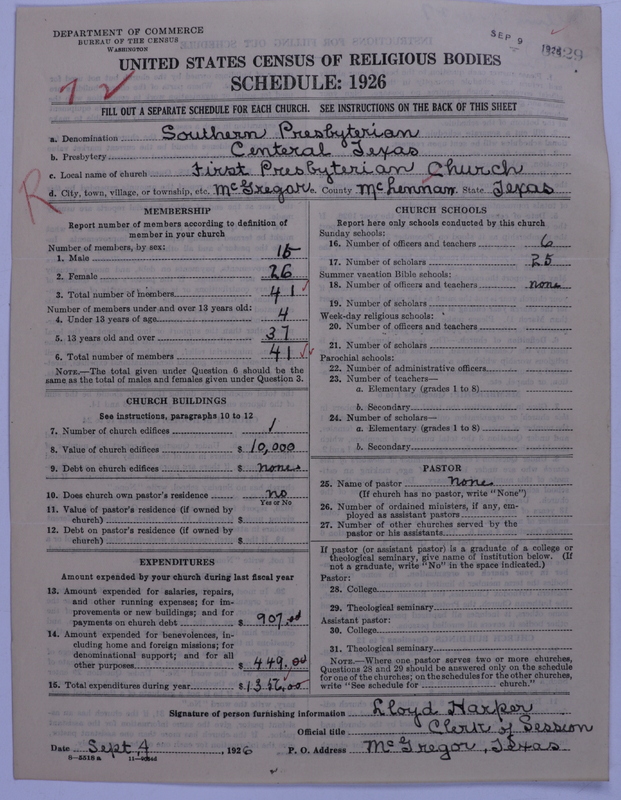 DEPARTMENT OF COMMERCE
BUREAU OF THE CENSUS
WASHINGTON
SEP 9 1926
UNITED STATES CENSUS OF RELIGIOUS BODIES
SCHEDULE: 1926
FILL OUT A SEPARATE SCHEDULE FOR EACH CHURCH. SEE INSTRUCTIONS ON THE BACK OF THIS SHEET
a. Denomination Southern Presbyterian
b. Presbytery Centeral Texas
c. Local name of church First Presbyterian Church
d. City, town, village, or township, etc. McGregor e. County McLennan State Texas
R
MEMBERSHIP
Report number of members according to definition of
member in your church
Number of members, by sex:
1. Male 15
2. Female 26
3. Total number of members 41
Number of members under and over 13 years old:
4. Under 13 years of age 4
5. 13 years old and over 37
6. Total number of members 41
NOTE.—The total given under Question 6 should be
same as the total of males and females given under Question 3.
CHURCH BUILDINGS
See instructions, paragraphs 10 to 12
7. Number of church edifices 1
8. Value of church edifices $ 10,000
9. Debt on church edifices $ none
10. Does church own pastor's residence no
Yes or No
11. Value of pastor's residence (if owned by
church) $
12. Debt on pastor's residence (if owned by
church) $
EXPENDITURES
Amount expended by your church during last fiscal year
13. Amount expended for salaries, repairs,
and other running expenses; for im-
provements or new buildings; and for
payments on church debt $ 907.00
14. Amount expended for benevolences, in-
cluding home and foreign missions; for
denominational support; and for all
other purposes $ 449.00
15. Total expenditures during year $ 1356.00
CHURCH SCHOOLS
Report here only schools conducted by this church
Sunday schools:
16. Number of officers and teachers 6
17. Number of scholars 25
Summer vacation Bible schools:
18. Number of officers and teachers none
19. Number of scholars
Week-day religious schools:
20. Number of officers and teachers
21. Number of scholars
Parochial schools:
22. Number of administrative officers
23. Number of teachers—
a. Elementary (grades 1 to 8)
b. Secondary
24. Number of scholars—
a. Elementary (grades 1 to 8)
b. Secondary
PASTOR
25. Name of pastor None
(If church has no pastor, write "None")
26. Number of ordained ministers, if any, em-
ployed as assistant pastors
27. Number of other churches served by the
pastor or his assistants
If pastor (or assistant pastor) is a graduate of a college or
theological seminary, give name of institution below. (If
not a graduate, write "No" in the space indicated.)
Pastor:
28. College
29. Theological seminary
Assistant pastor:
30. College
31. Theological seminary
NOTE.—Where one pastor serves two or more churches,
Questions 28 and 29 should be answered only on the schedule
for one of the churches; on the schedules for the other churches,
write "See schedule for church."
Signature of person furnishing information Lloyd Harper
Official title Clerk of Session
Date Sept 4, 1926 P. O. Address McGregor, Texas
8—5518a